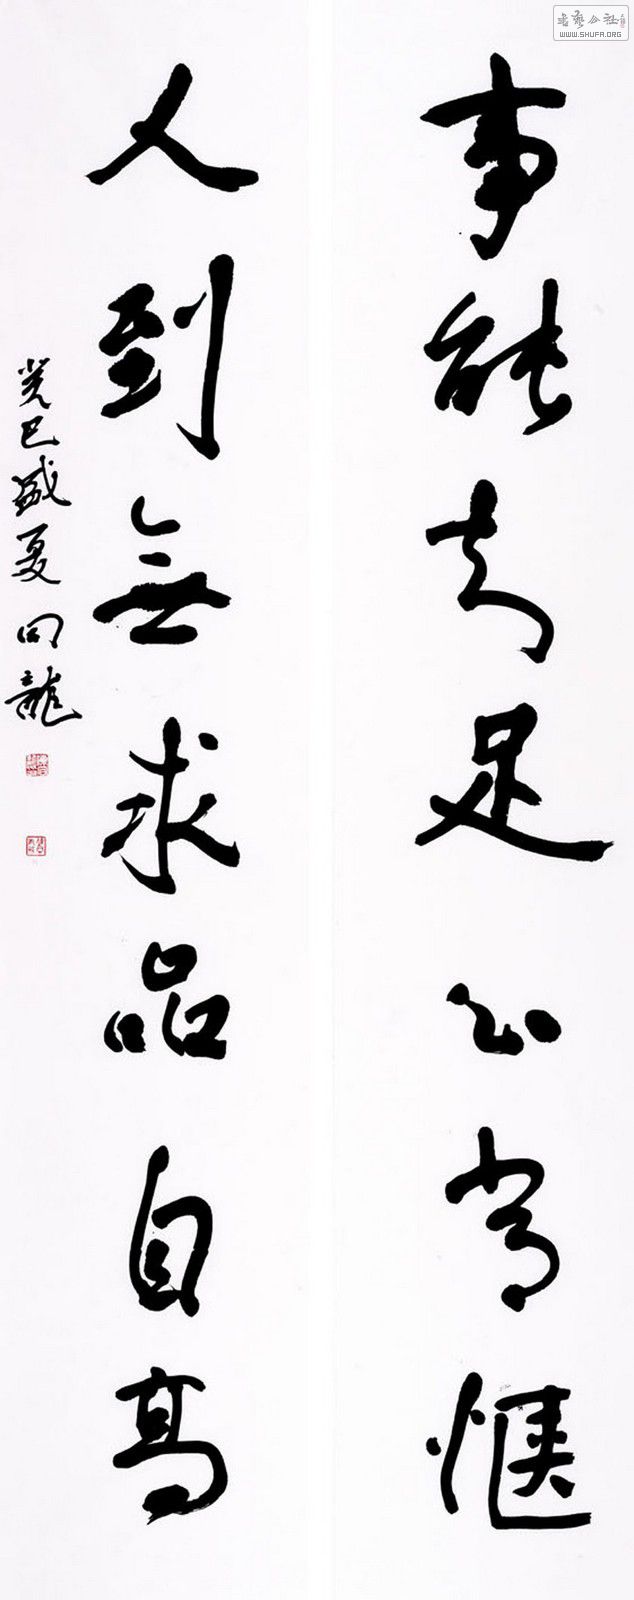 事能知足心常惬
人到無求品自高
癸巳盛夏回龍
书艺公社
WWW.SHUFA.ORG